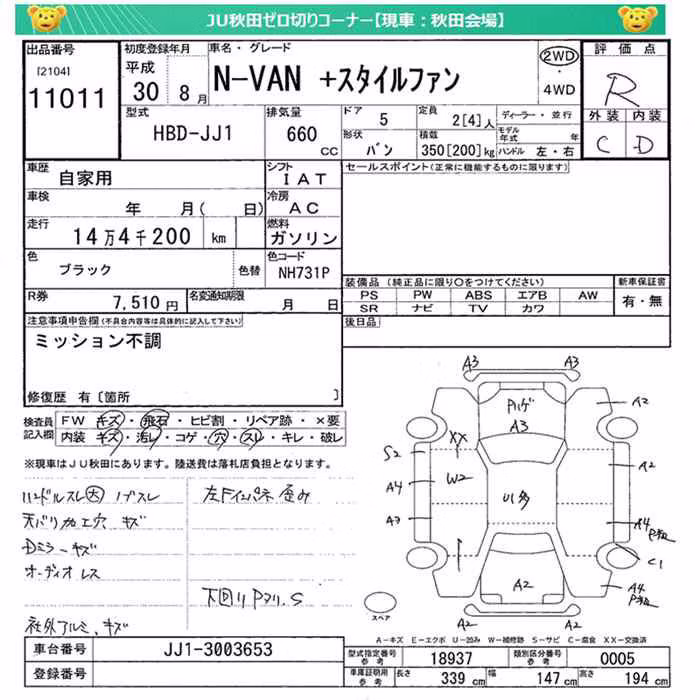 JU秋田ゼロ切りコーナー【現車：秋田会場】
出品番号
[2104]
11011
初度登録年月
平成
30 8月
車名・グレード
N-VAN +スタイルファン
2WD
・
4WD
評価点
R
外装 内装
C D
型式
HBD-JJ1
排気量
660
CC
ドア 5
形状 バン
定員 2[4]人
積載 350[200]kg
ディーラー・並行
モデル年式 年
ハンドル 左・右
車歴
自家用
シフト
IAT
セールスポイント(正常に機能するものに限ります)
車検
年 月( 日)
冷房
AC
走行
14万4千200 km
燃料
ガソリン
色
ブラック
色替
色コード
NH731P
装備品(純正品に限り○をつけてください)
PS PW ABS エアB AW
SR ナビ TV カワ
新車保証書
有・無
R券
7,510円
名変通知期限
月 日
後日品
注意事項申告欄(不具合内容等は具体的に記入して下さい)
ミッション不調
修復歴 有[箇所 ]
検査員記入欄
FW キズ・飛石・ヒビ割・リペア跡・×要
内装 キズ・汚レ・コゲ・穴・スレ・キレ・破レ
※現車はJU秋田にあります。陸送費は落札店負担となります。
ハンドルスレ大 ノブスレ
天バリ加工穴 キズ
Dミラーキズ
オーディオレス
社外アルミ、キズ
左Fインパネ歪み
下回りPマリ、S
A3 A3
ハゲ
A3
A2
XX
S2
W2
A4
A2
A3
U多
A4
C1
A2
A4
A2 A2
スペア
A－キズ E－エクボ U－凹み W－補修跡 S－サビ C－腐食 XX－交換済
車台番号
JJ1-3003653
登録番号
型式指定番号
参考
18937
類別区分番号
参考
0005
車庫証明用
参考
長さ 339 cm
幅 147 cm
高さ 194 cm